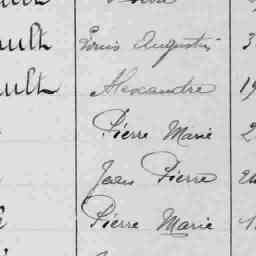 ault Louis Augustin 3
ault Alexandre 19
Pierre Marie 2
Jean Pierre
Pierre Marie